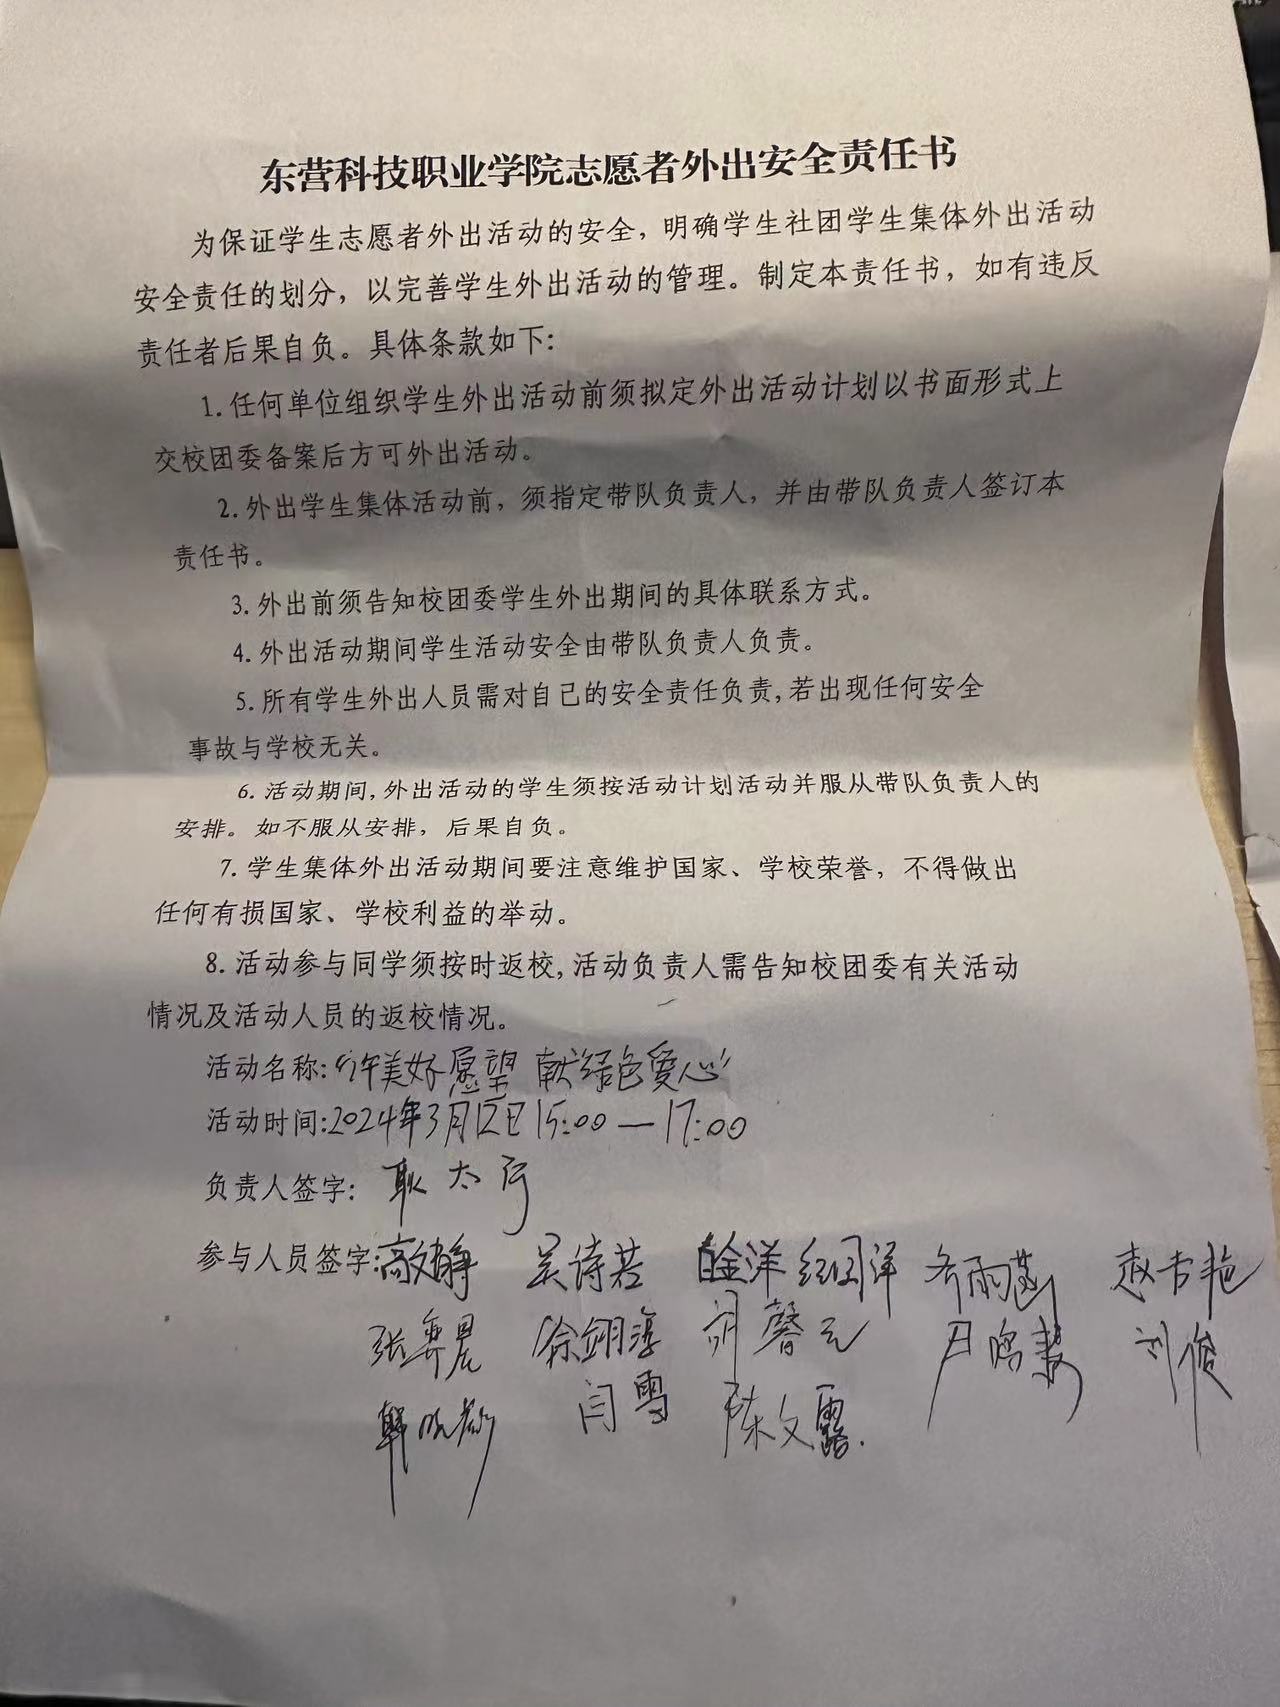 东营科技职业学院志愿者外出安全责任书
为保证学生志愿者外出活动的安全，明确学生社团学生集体外出活动
安全责任的划分，以完善学生外出活动的管理。制定本责任书，如有违反
责任者后果自负。具体条款如下：
1.任何单位组织学生外出活动前须拟定外出活动计划以书面形式上
交校团委备案后方可外出活动。
2.外出学生集体活动前，须指定带队负责人，并由带队负责人签订本
责任书。
3.外出前须告知校团委学生外出期间的具体联系方式。
4.外出活动期间学生活动安全由带队负责人负责。
5.所有学生外出人员需对自己的安全责任负责,若出现任何安全
事故与学校无关。
6.活动期间,外出活动的学生须按活动计划活动并服从带队负责人的
安排。如不服从安排，后果自负。
7.学生集体外出活动期间要注意维护国家、学校荣誉，不得做出
任何有损国家、学校利益的举动。
8.活动参与同学须按时返校,活动负责人需告知校团委有关活动
情况及活动人员的返校情况。
活动名称:“许美好愿望 献绿色爱心”
活动时间:2024年3月12日15:00—17:00
负责人签字: 耿太行
参与人员签字: 吴诗若 赵书艳
张弈晨 徐翊淳 胡馨元 刘俊
闫雪 陈文露